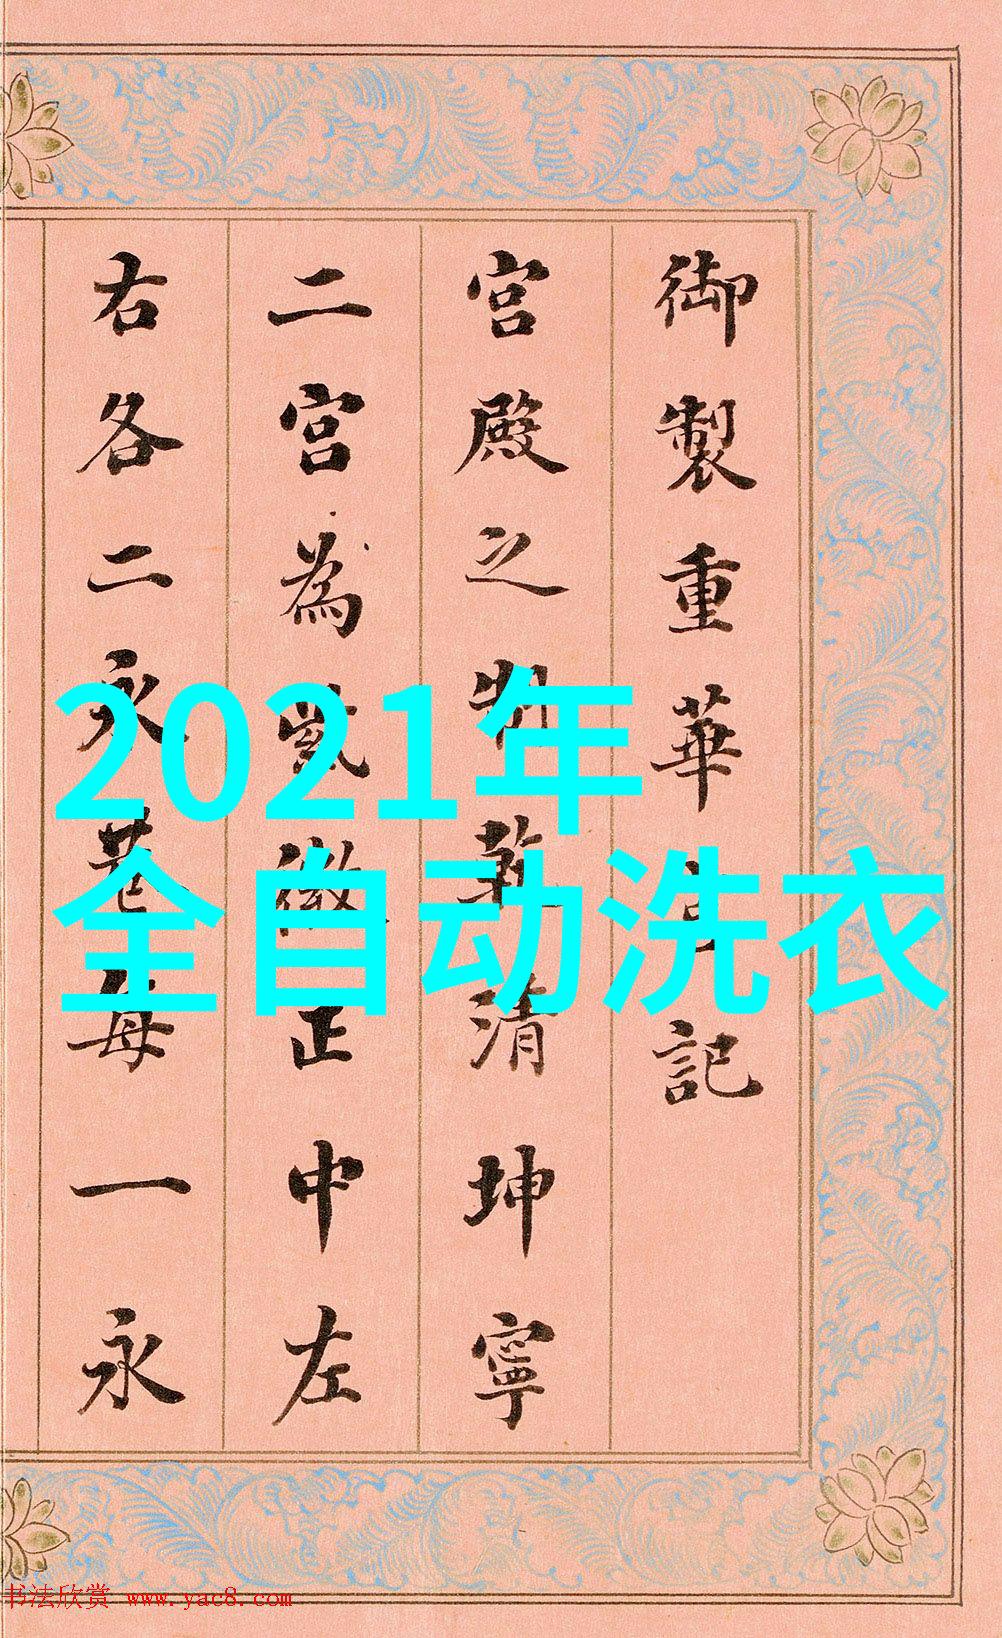 御製重華宮記
宮殿之制乾清坤寧
二宮為紫微正中左
右各二永巷每一永
2021年
全自动洗衣
书法欣赏 www.yac8.com